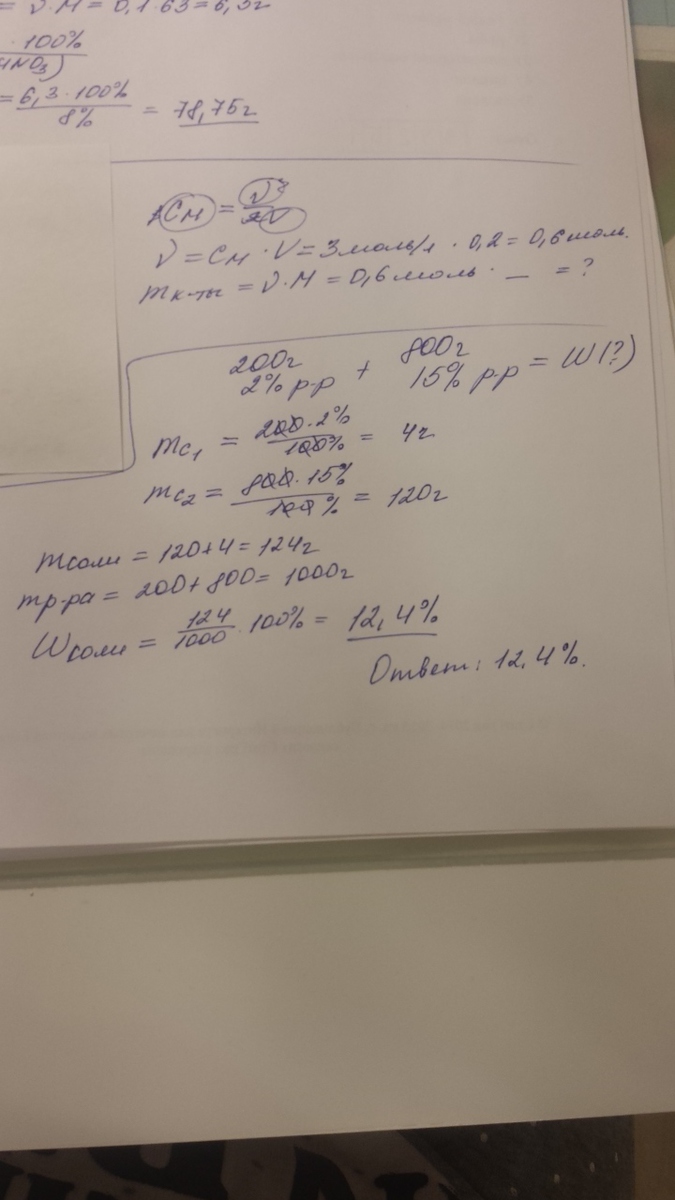 = ν·M = 0,1·63 = 6,3г
· 100%
HNO₃)
= 6,3·100% / 8% = 78,75г
Cм = ν / V
ν = Cм · V = 3моль/л · 0,2 = 0,6 моль.
mк-ты = ν·M = 0,6 моль · — = ?
200г + 800г = W(?)
2% р-р 15% р-р
mc₁ = 200·2% / 100% = 4г
mc₂ = 800·15% / 100% = 120г
mсоли = 120+4 = 124г
mр-ра = 200+800 = 1000г
Wсоли = 124 / 1000 · 100% = 12,4%
Ответ: 12,4%.